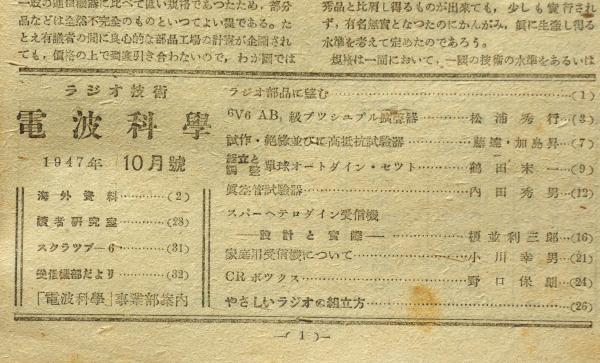 一般の通信機器に比べて低い規格であつたため、部分
品などは全然不完全のものといつてよい程である。た
とえ有識者の間に良心的な部品工場の計畫が企圖され
ても、價格の上で到底引き合わないので、わが國では
秀品と比肩し得るものが出來ても、少しも實行され
ず、有名無實となつたのにかんがみ、眞に生産し得る
水準を考えて定めたのであろう。
規格は一間において、一國の技術の水準をあるいは
ラジオ技術
電波科學
1947年 10月號
海外資料…………(2)
讀者硏究室…………(28)
スクラツブー6…………(31)
受信機部だより…………(32)
「電波科學」事業部案内
ラジオ部品に望む…………(1)
6V6 AB₁ 級プツシユプル試驗器…………松浦秀行…(3)
試作・絶緣並びに高抵抗試驗器…………藤達・加島昇…(7)
組立と調整 單球オートダイン・セツト…………鶴田末一…(9)
眞空管試驗器…………内田秀男…(12)
スパーヘテロダイン受信機
―設計と實際―…………榎並利三郎…(16)
家庭用受信機について…………小川幸男…(21)
CRボツクス…………野口保朗…(24)
やさしいラジオの組立方…………(26)
―( 1 )―